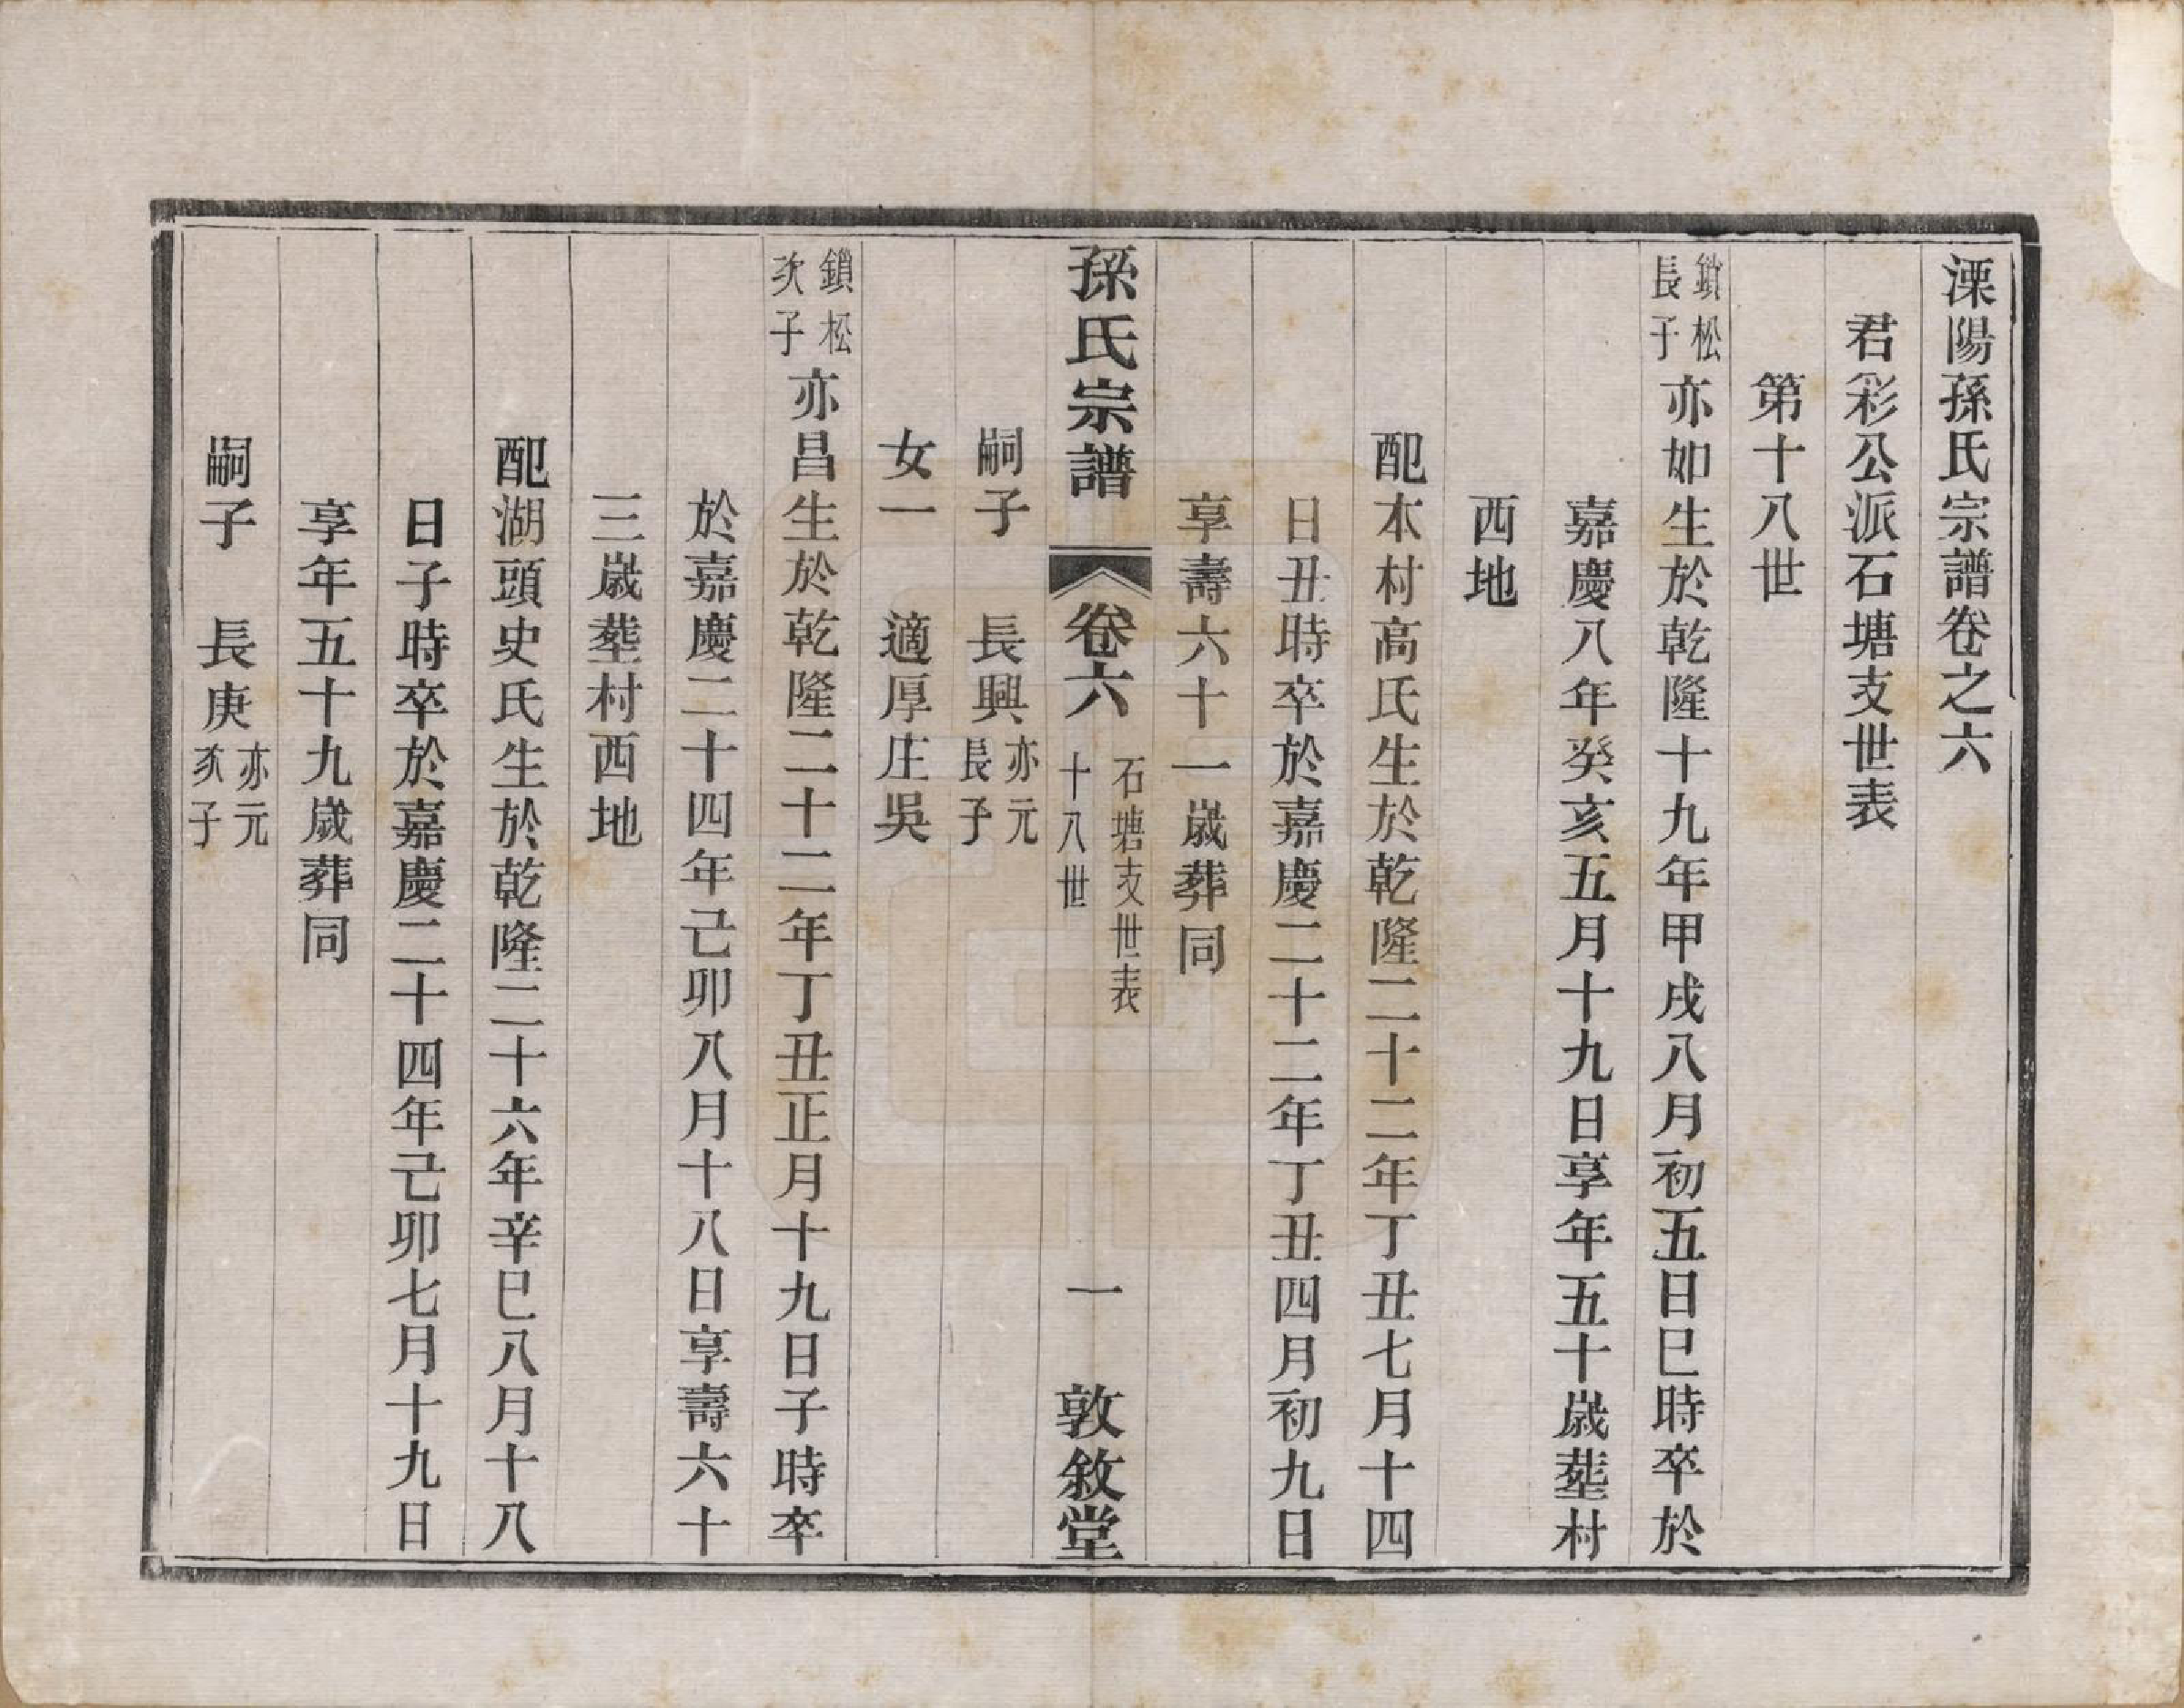 溧陽孫氏宗譜卷之六
君彩公派石塘支世表
第十八世
鎖松長子亦如生於乾隆十九年甲戌八月初五日巳時卒於
嘉慶八年癸亥五月十九日享年五十歲塟村
西地
配本村高氏生於乾隆二十二年丁丑七月十四
日丑時卒於嘉慶二十二年丁丑四月初九日
享壽六十一歲葬同
孫氏宗譜 卷六 石塘支世表 十八世 一 敦敘堂
嗣子 長興亦元長子
女一 適厚庄吳
鎖松次子亦昌生於乾隆二十二年丁丑正月十九日子時卒
於嘉慶二十四年己卯八月十八日享壽六十
三歲塟村西地
配湖頭史氏生於乾隆二十六年辛巳八月十八
日子時卒於嘉慶二十四年己卯七月十九日
享年五十九歲葬同
嗣子 長庚亦元次子